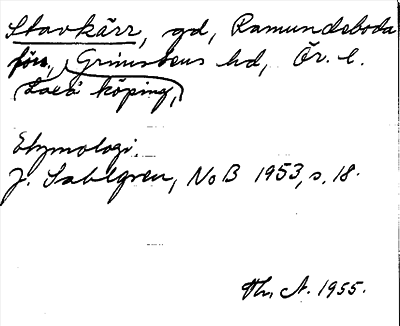 Stavkärr, gd, Ramundeboda
förs, Grimstens hd, Ör. l.
Laxå köping,
Etymologi.
J. Sahlgren, NoB 1953, s. 18.
Th. A. 1955.